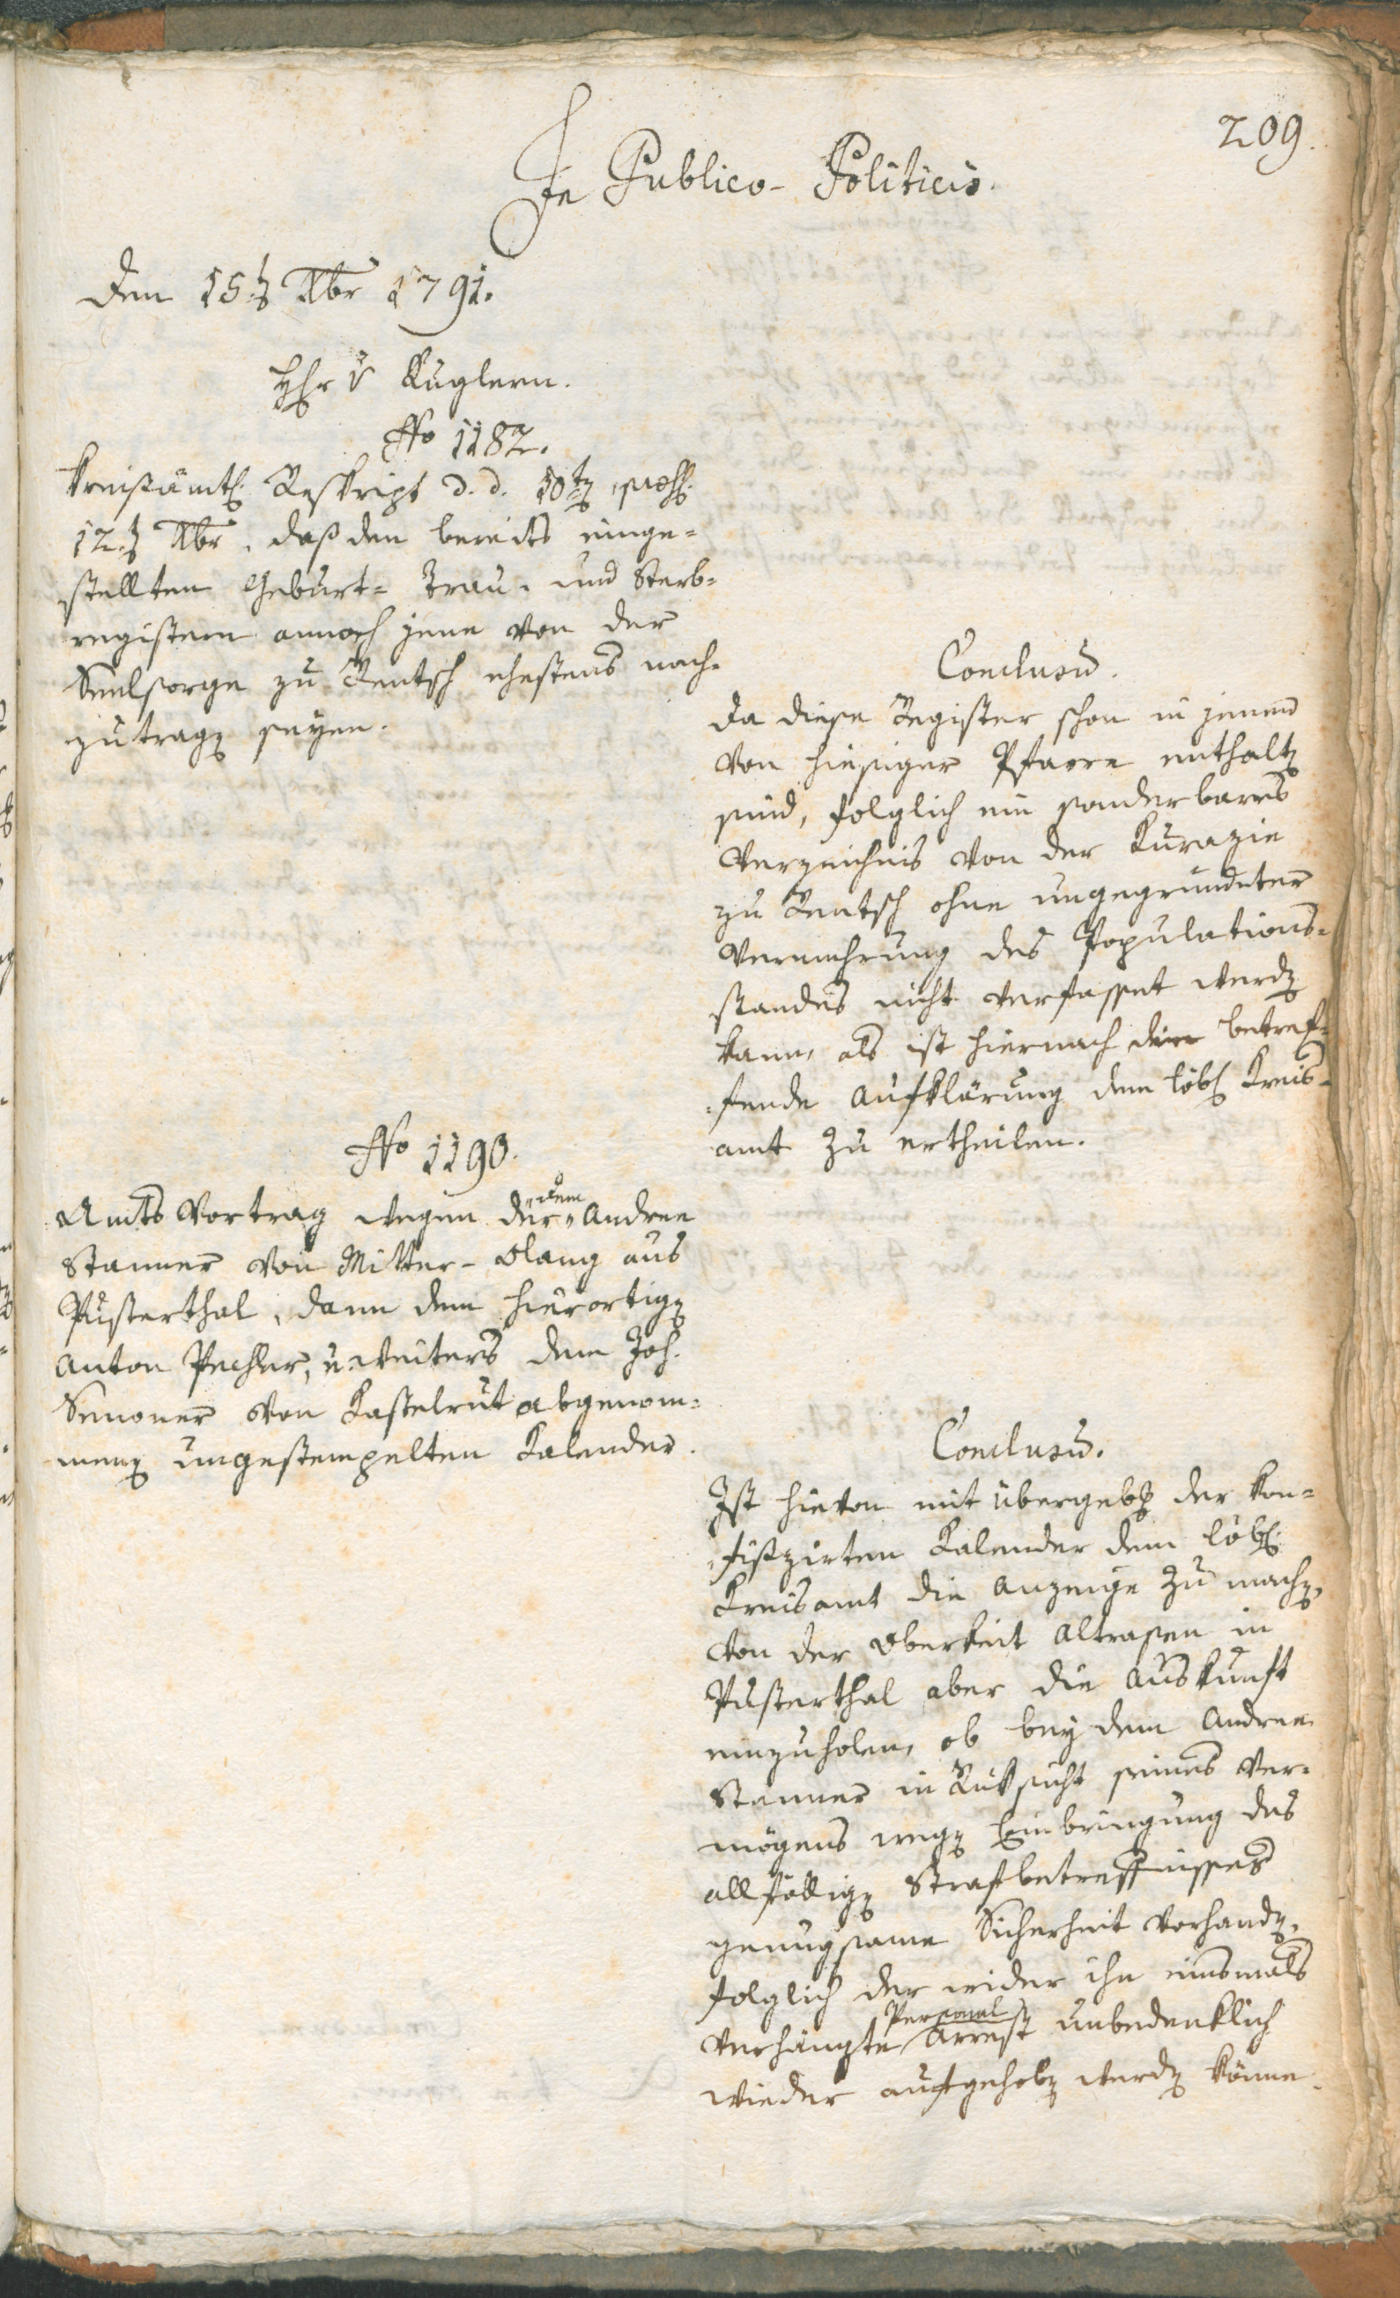 209.
In Publico-Politicis.
Den 15.t Xbr 1791.
H: v Kuglern.
No 1182.
Kreißämtl: Reskript d. d. 10t
12.t Xbr, daß den bereits einge=
stellten Geburt= Trau= und Sterb=
registern annoch jene von der
Seelsorge zu Rentsch ehestens nach=
zutragen seyen.
Conclusu.
Da diese Register schon in jenen
von hiesiger Pfarre enthalten
sind, folglich ein sonderbares
Verzeichnis von der Kurazie
zu Rentsch ohne ungegründeter
Vermehrung des Populations=
standes nicht verfasset werden
kann, als ist hiernach die betref=
fende Aufklärung dem löbl Kreis=
amt zu ertheilen.
No 1190.
Amts Vortrag wegen der dem Andree
Stanner von Mitter-Olang aus
Pusterthal, dann dem hierortigen
Anton Pechler, u. weiters dem Joh.
Senoner von Kastelrut abgenom=
menen ungestempelten Kalender.
Conclusu.
Ist hievon mit übergebung der kon=
fiszirten Kalender dem löbl:
Kreisamt die Anzeige zu machen,
von der Oberkeit Altrasen in
Pusterthal aber die Auskunft
einzuholen, ob bey dem Andree
Stanner in Rüksicht seines Ver=
mögens wegen Einbringung des
allfälligen Strafbetreffnisses
genugsame Sicherheit vorhanden,
folglich der wider ihn einsmals
verhängte Personal Arrest unbedenklich
wieder aufgehoben werden könne.